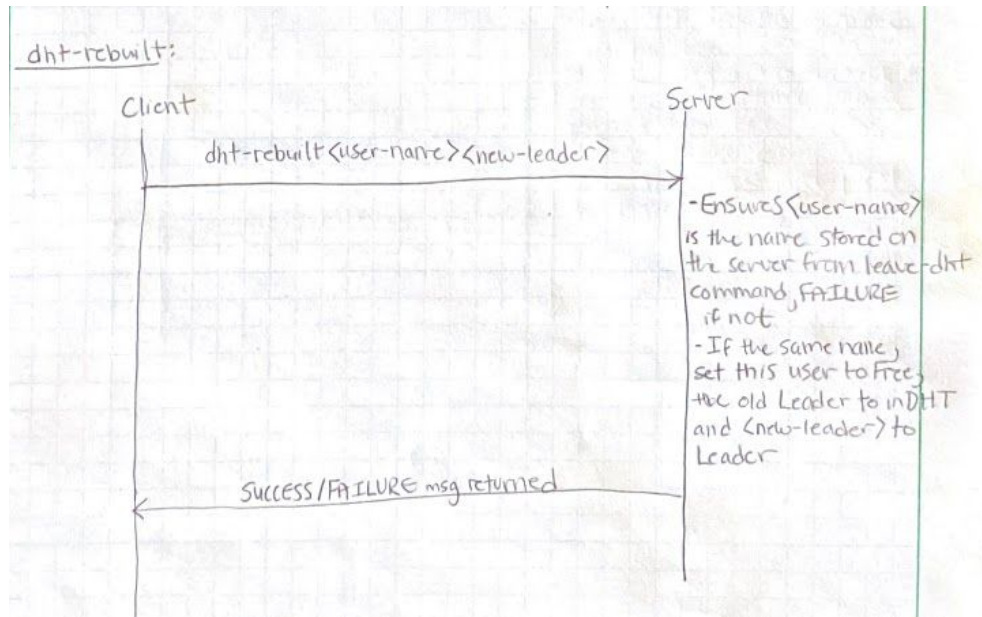 dht-rebuilt:
Client
Server
dht-rebuilt<user-name><new-leader>
-Ensures <user-name>
is the name stored on
the server from leave-dht
command, FAILURE
if not
-If the same name,
set this user to Free,
the old Leader to inDHT
and <new-leader> to
Leader
SUCCESS/FAILURE msg returned